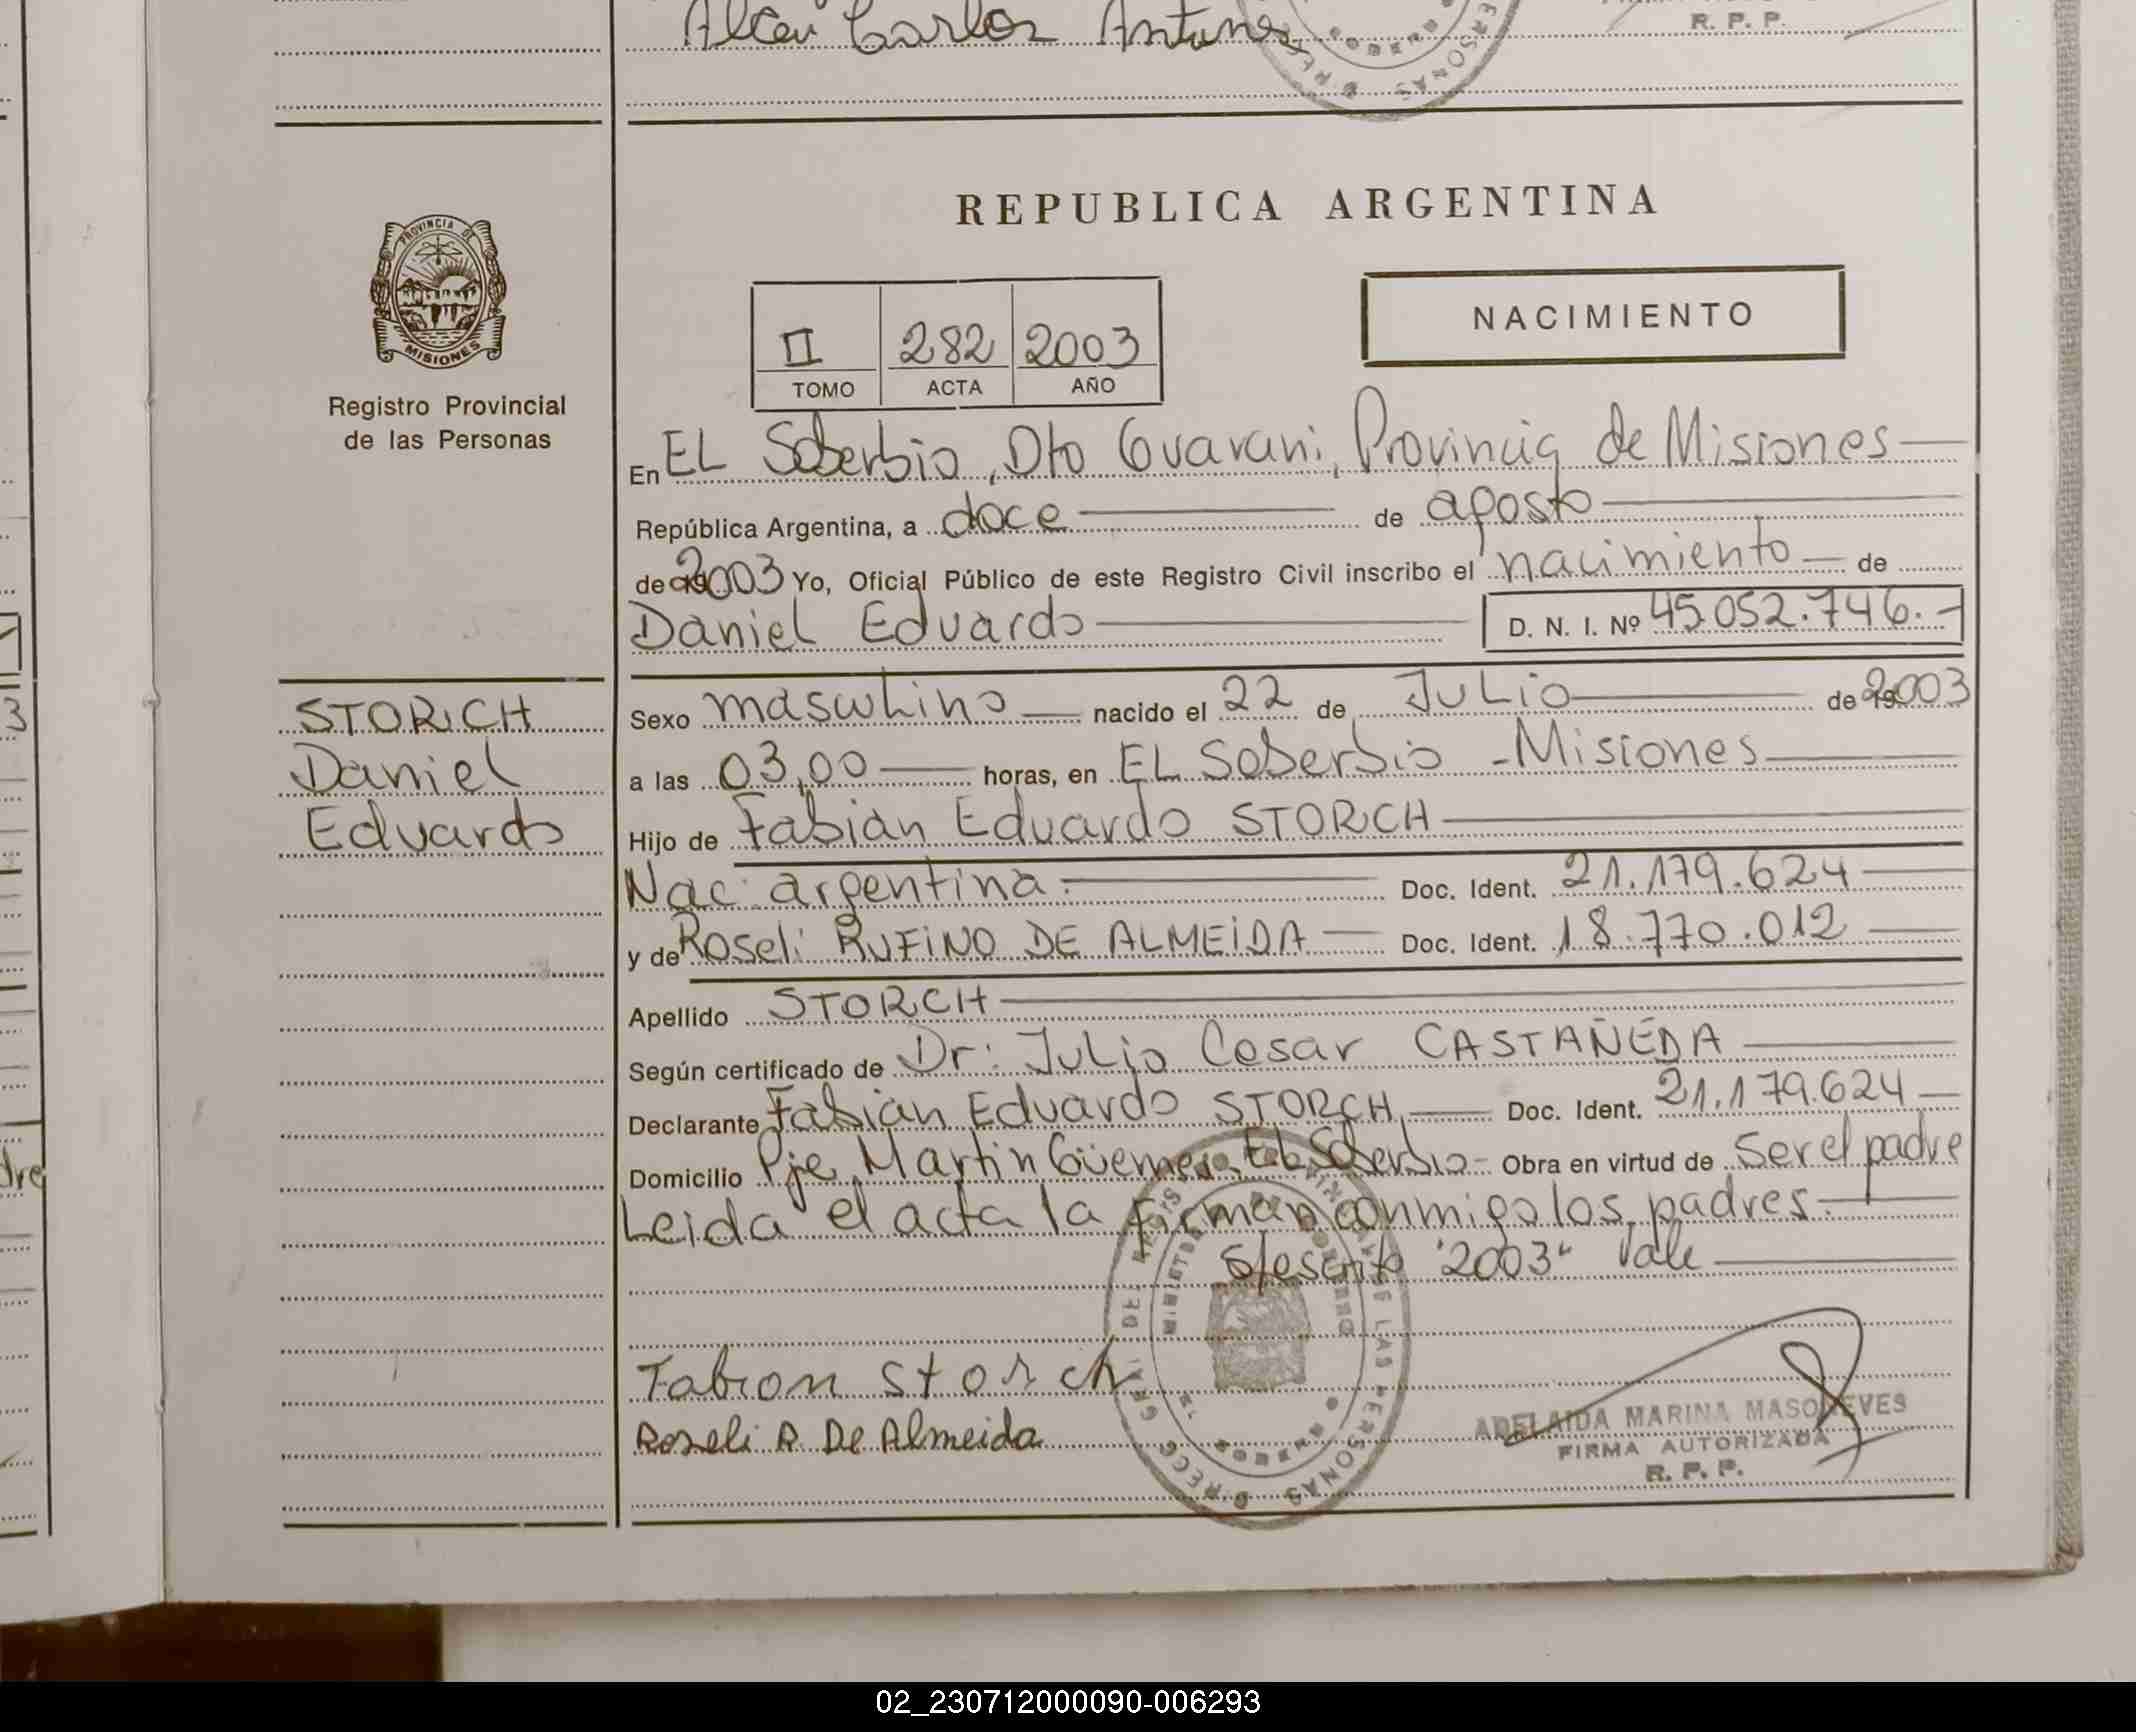 Alceu Carlos Antunes
R. P. P.
REPUBLICA ARGENTINA
PROVINCIA DE
MISIONES
Registro Provincial
de las Personas
II 282 2003
TOMO ACTA AÑO
NACIMIENTO
En EL Soberbio, Dto Guarani, Provincia de Misiones
República Argentina, a doce de agosto
de 2003 Yo, Oficial Público de este Registro Civil inscribo el nacimiento de
Daniel Eduardo D. N. I. Nº 45.052.746.-
STORCH
Daniel
Eduardo
Sexo masculino nacido el 22 de Julio de 2003
a las 03,00 horas, en EL Soberbio - Misiones
Hijo de Fabián Eduardo STORCH
Nac: argentina. Doc. Ident. 21.179.624
y de Roseli RUFINO DE ALMEIDA Doc. Ident. 18.770.012
Apellido STORCH
Según certificado de Dr: Julio Cesar CASTAÑEDA
Declarante Fabián Eduardo STORCH Doc. Ident. 21.179.624
Domicilio Pje Martin Güemes. EL Soberbio- Obra en virtud de ser el padre
Leida el acta la firman conmigo los padres.
S/escrito "2003" Vale
Fabion Storch
Roseli R. De Almeida
ADELAIDA MARINA MASONEVES
FIRMA AUTORIZADA
R. P. P.
02_230712000090-006293